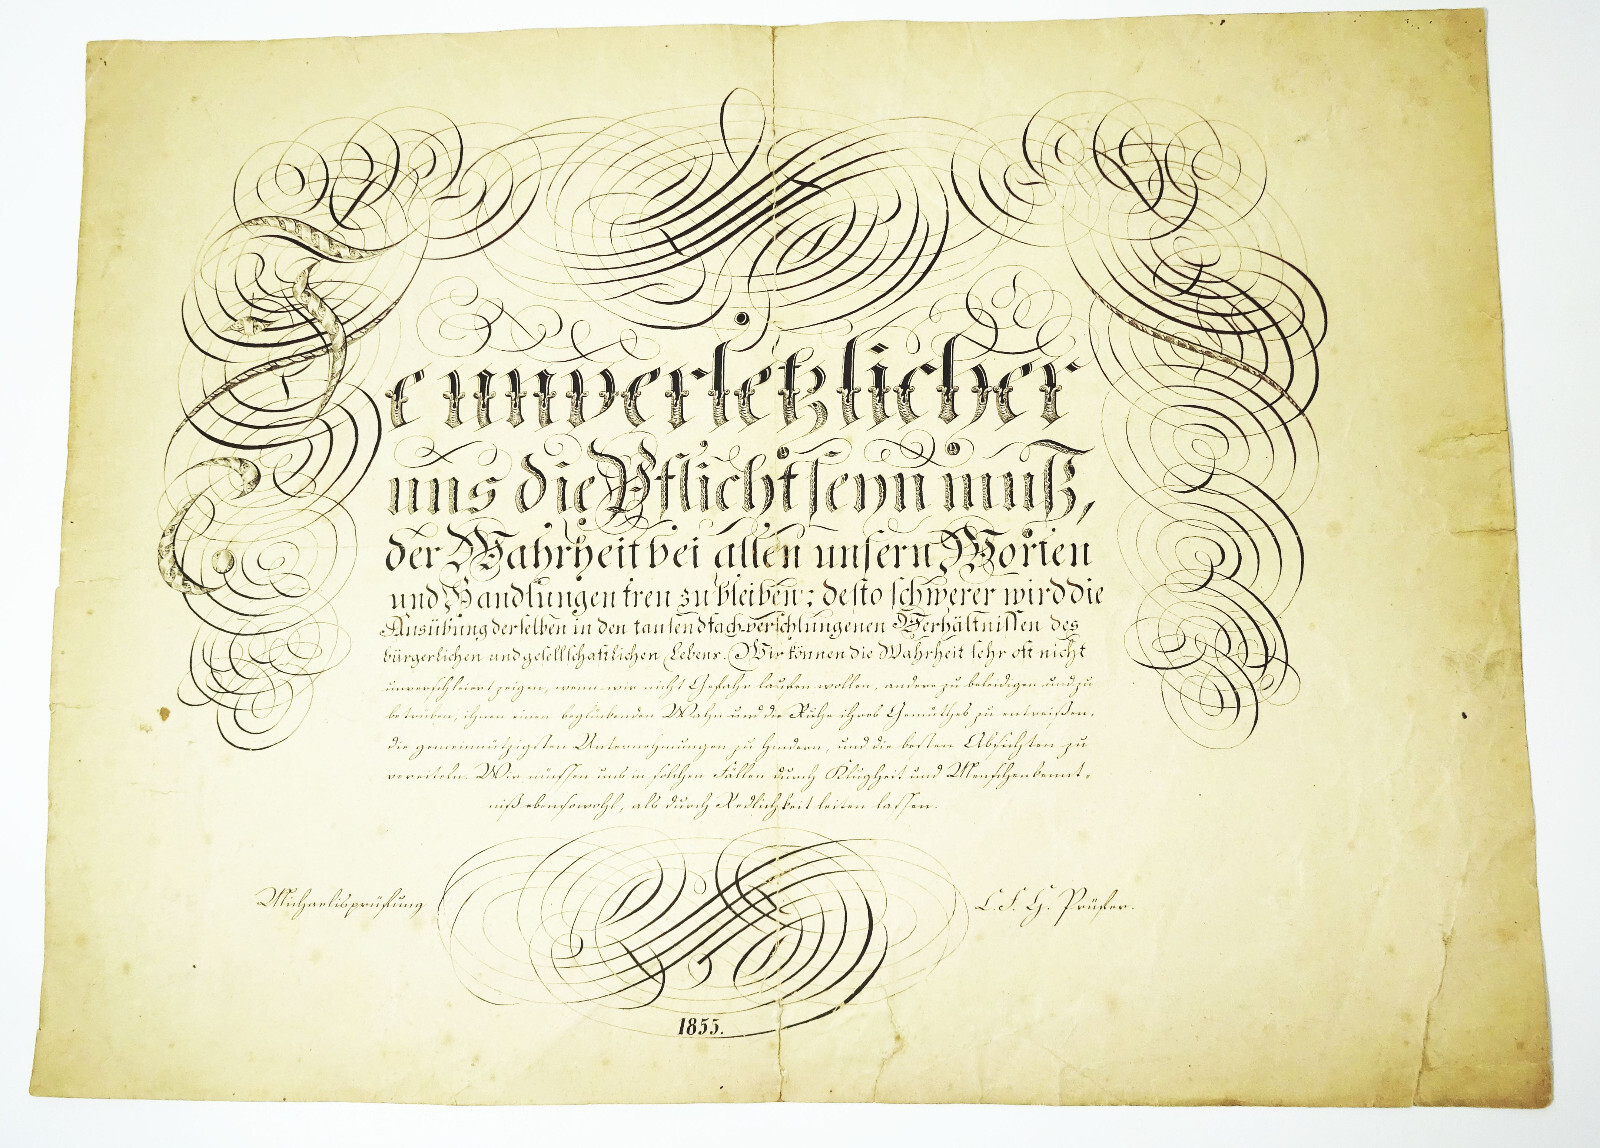 Je unverletzlicher
uns die Pflicht seyn muß,
der Wahrheit bei allen unsern Worten
und Handlungen treu zu bleiben; desto schwerer wird die
Ausübung derselben in den tausendfach verschlungenen Verhältnissen des
bürgerlichen und gesellschaftlichen Lebens. Wir können die Wahrheit sehr oft nicht
unverschleiert zeigen, wenn wir nicht Gefahr laufen wollen, andere zu beleidigen und zu
betrüben, ihnen einen beglückenden Wahn und die Ruhe ihres Gemüthes zu entreißen,
die gemeinnützigsten Unternehmungen zu hindern, und die besten Absichten zu
vereiteln. Wir müssen uns in solchen Fällen durch Klugheit und Menschenkennt-
niß ebensowohl, als durch Redlichkeit leiten lassen.
Michaelisprüfung
C. F. H. Prüfer.
1855.